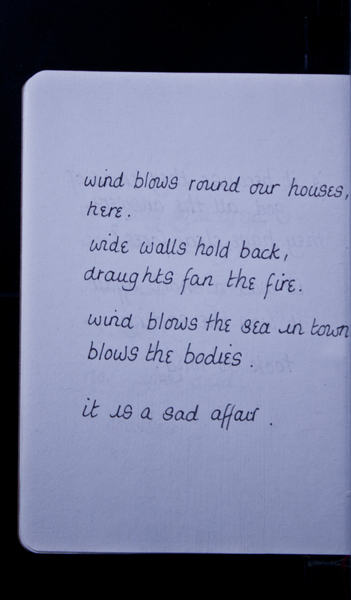 wind blows round our houses,
here.
wide walls hold back,
draughts fan the fire.
wind blows the sea in town
blows the bodies.
it is a sad affair.